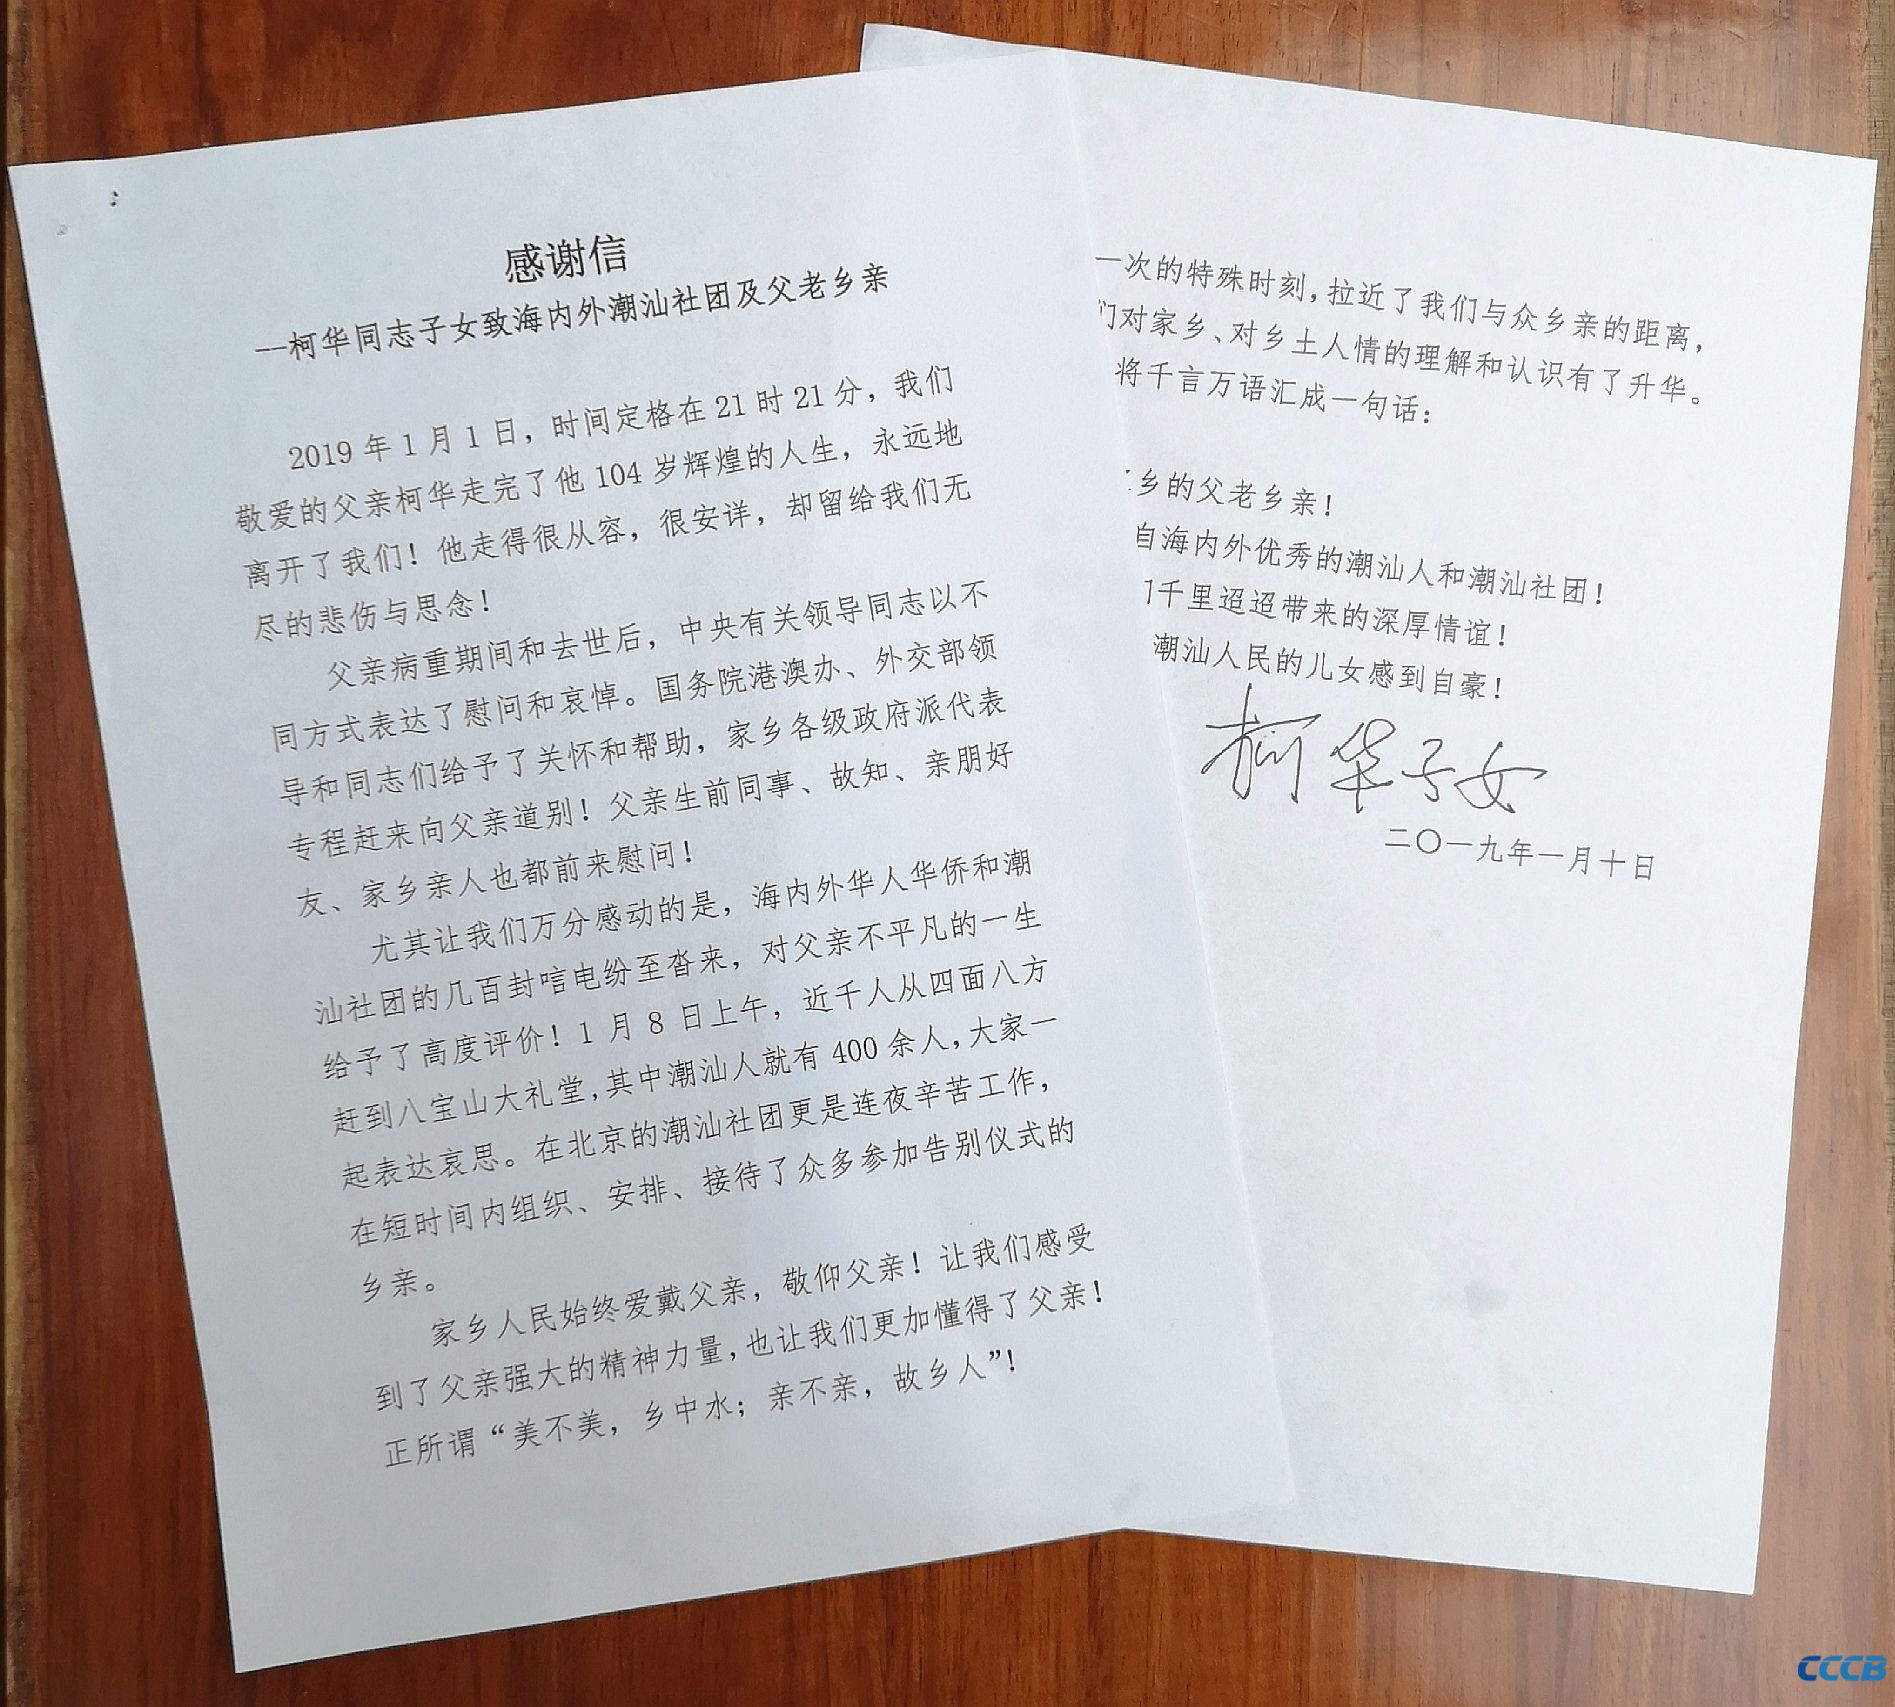 感谢信
—柯华同志子女致海内外潮汕社团及父老乡亲
2019 年 1 月 1 日，时间定格在 21 时 21 分，我们
敬爱的父亲柯华走完了他 104 岁辉煌的人生，永远地
离开了我们！他走得很从容，很安详，却留给我们无
尽的悲伤与思念！
父亲病重期间和去世后，中央有关领导同志以不
同方式表达了慰问和哀悼。国务院港澳办、外交部领
导和同志们给予了关怀和帮助，家乡各级政府派代表
专程赶来向父亲道别！父亲生前同事、故知、亲朋好
友、家乡亲人也都前来慰问！
尤其让我们万分感动的是，海内外华人华侨和潮
汕社团的几百封唁电纷至沓来，对父亲不平凡的一生
给予了高度评价！1 月 8 日上午，近千人从四面八方
赶到八宝山大礼堂，其中潮汕人就有 400 余人，大家一
起表达哀思。在北京的潮汕社团更是连夜辛苦工作，
在短时间内组织、安排、接待了众多参加告别仪式的
乡亲。
家乡人民始终爱戴父亲，敬仰父亲！让我们感受
到了父亲强大的精神力量，也让我们更加懂得了父亲！
正所谓“美不美，乡中水；亲不亲，故乡人”！
一次的特殊时刻，拉近了我们与众乡亲的距离，
们对家乡、对乡土人情的理解和认识有了升华。
将千言万语汇成一句话：
乡的父老乡亲！
自海内外优秀的潮汕人和潮汕社团！
千里迢迢带来的深厚情谊！
潮汕人民的儿女感到自豪！
柯华子女
二〇一九年一月十日
CCCB